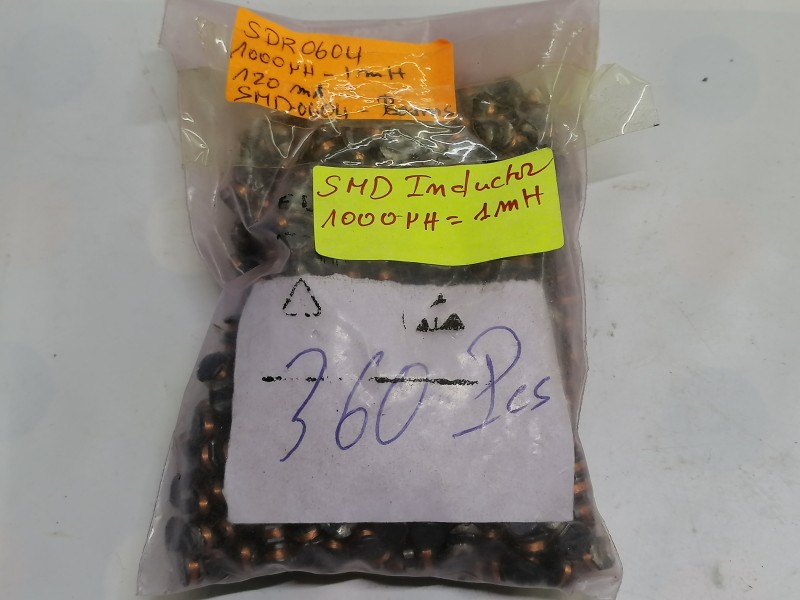 SDR0604
1000µH - 1mH
120 mA
SMD-0604 - Bourns
SMD Inductor
1000µH = 1mH
360 Pcs